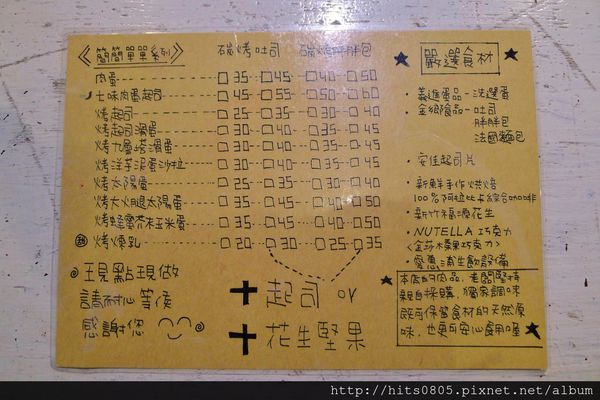 《簡簡單單系列》 碳烤吐司 碳烤胖胖包
肉蛋 35 45 40 50
七味肉蛋起司 45 55 50 60
烤起司 25 35 30 40
烤起司滑蛋 30 40 35 45
烤九層塔滑蛋 30 40 35 45
烤洋芋泥蛋沙拉 30 40 35 45
烤太陽蛋 25 35 30 40
烤大火腿太陽蛋 35 45 40 50
烤蜂蜜芥末玉米蛋 35 45 40 50
烤煉乳 20 30 25 35
現點現做
請耐心等候
感謝您
+起司 or
+花生堅果
嚴選食材
• 義進蛋品-洗選蛋
• 金鄉食品-吐司
胖胖包
法國麵包
• 安佳起司片
• 新鮮手作烘焙
100%阿拉比卡綜合咖啡
• 新竹福源花生
• NUTELLA 巧克力
<金莎榛果巧克力>
• 愛惠浦生飲設備
本店的肉品,老闆堅持
親自採購,獨家調味
既可保留食材的天然原
味,也更可安心食用喔
http://hits0805.pixnet.net/album